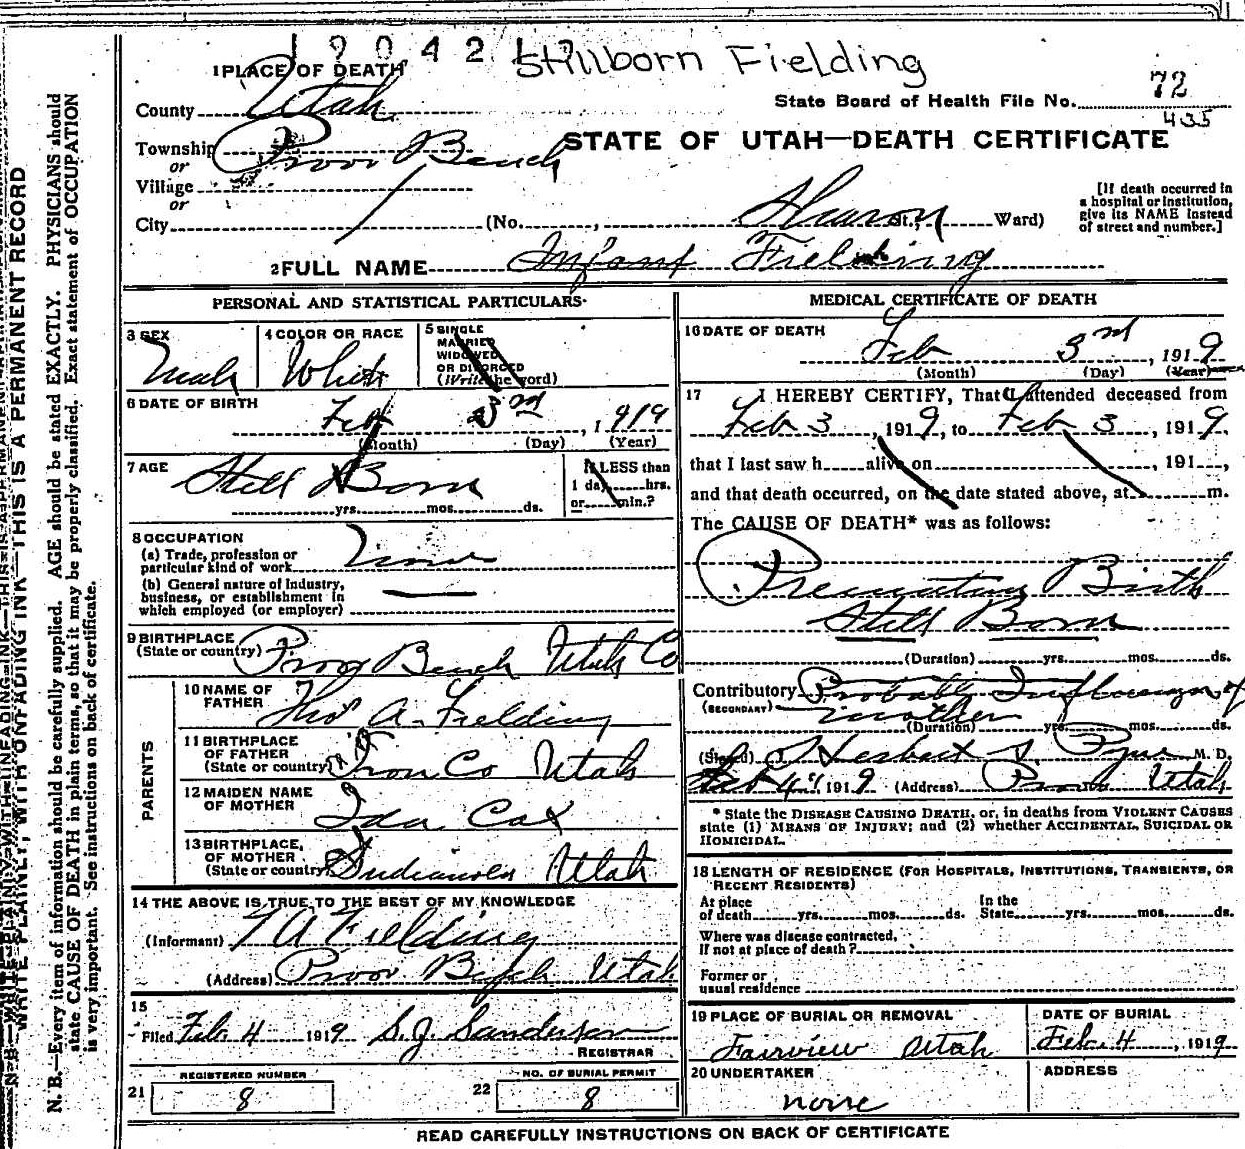 1 9 0 4 2 1
Stillborn Fielding
1 PLACE OF DEATH
County Utah
State Board of Health File No. 72
435
Township Provo Bench
or
STATE OF UTAH—DEATH CERTIFICATE
Village
or
City (No. , Sharon St., Ward)
[If death occurred in
a hospital or institution,
give its NAME instead
of street and number.]
2 FULL NAME Infant Fielding
PERSONAL AND STATISTICAL PARTICULARS
3 SEX
Male
4 COLOR OR RACE
White
5 SINGLE
MARRIED
WIDOWED
OR DIVORCED
(Write the word)
6 DATE OF BIRTH
Feb 3rd , 1919
(Month) (Day) (Year)
7 AGE
Still Born
yrs. mos. ds.
If LESS than
1 day, hrs.
or min.?
8 OCCUPATION
(a) Trade, profession or
particular kind of work
(b) General nature of Industry,
business, or establishment in
which employed (or employer)
9 BIRTHPLACE
(State or country) Provo Bench Utah Co
PARENTS
10 NAME OF
FATHER Thos A. Fielding
11 BIRTHPLACE
OF FATHER
(State or country) Iron Co Utah
12 MAIDEN NAME
OF MOTHER Ida Cox
13 BIRTHPLACE,
OF MOTHER
(State or country) Indianola Utah
14 THE ABOVE IS TRUE TO THE BEST OF MY KNOWLEDGE
(Informant) T A Fielding
(Address) Provo Bench Utah
15
Filed Feb. 4 1919 S. J. Sanderson
REGISTRAR
REGISTERED NUMBER
21 8
NO. OF BURIAL PERMIT
22 8
MEDICAL CERTIFICATE OF DEATH
16 DATE OF DEATH
Feb 3rd , 1919
(Month) (Day) (Year)
17 I HEREBY CERTIFY, That I attended deceased from
Feb 3 , 1919, to Feb 3 , 1919,
that I last saw h alive on , 191 ,
and that death occurred, on the date stated above, at m.
The CAUSE OF DEATH* was as follows:
Premature Birth
Still Born
(Duration) yrs. mos. ds.
Contributory Probably Influenza of
(SECONDARY) mother
(Duration) yrs. mos. ds.
(Signed) Herbert S. Pyne M. D.
Feb 4 1919 (Address) Provo Utah
* State the DISEASE CAUSING DEATH, or, in deaths from VIOLENT CAUSES
state (1) MEANS OF INJURY; and (2) whether ACCIDENTAL, SUICIDAL OR
HOMICIDAL.
18 LENGTH OF RESIDENCE (FOR HOSPITALS, INSTITUTIONS, TRANSIENTS, OR
RECENT RESIDENTS)
At place
of death yrs. mos. ds.
In the
State yrs. mos. ds.
Where was disease contracted,
if not at place of death?
Former or
usual residence
19 PLACE OF BURIAL OR REMOVAL
Fairview Utah
DATE OF BURIAL
Feb. 4 , 1919
20 UNDERTAKER
none
ADDRESS
READ CAREFULLY INSTRUCTIONS ON BACK OF CERTIFICATE
WRITE PLAINLY, WITH UNFADING INK—THIS IS A PERMANENT RECORD
N. B.—Every item of information should be carefully supplied. AGE should be stated EXACTLY. PHYSICIANS should
state CAUSE OF DEATH in plain terms, so that it may be properly classified. Exact statement of OCCUPATION
is very important. See instructions on back of certificate.